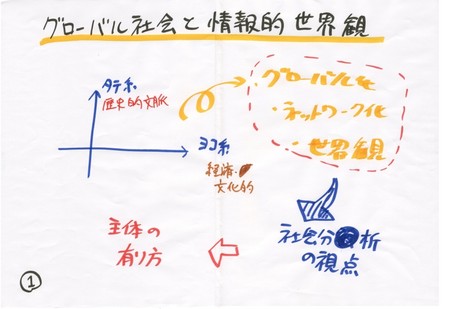 グローバル社会と情報的世界観
タテ系
歴史的文脈
ヨコ系
経済・
文化的
・グローバル化
・ネットワーク化
・世界観
社会分析
の視点
主体の
有り方
1